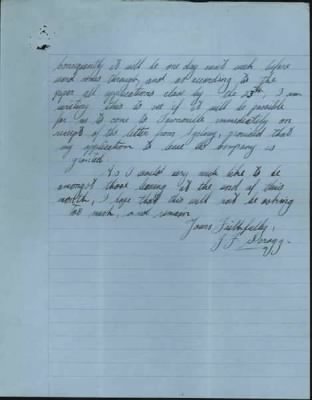 consequently it will be one day next week before
word comes through, and as according to the
paper all applications close by the 13th, I am
writing this to see if it will be possible
for me to come to Townsville immediately on
receipt of the letter from Sydney, provided that
my application to leave the company is
granted.
As I would very much like to be
amongst those leaving at the end of this
month, I hope that this will not be asking
too much, and remain
Yours Faithfully,
J F